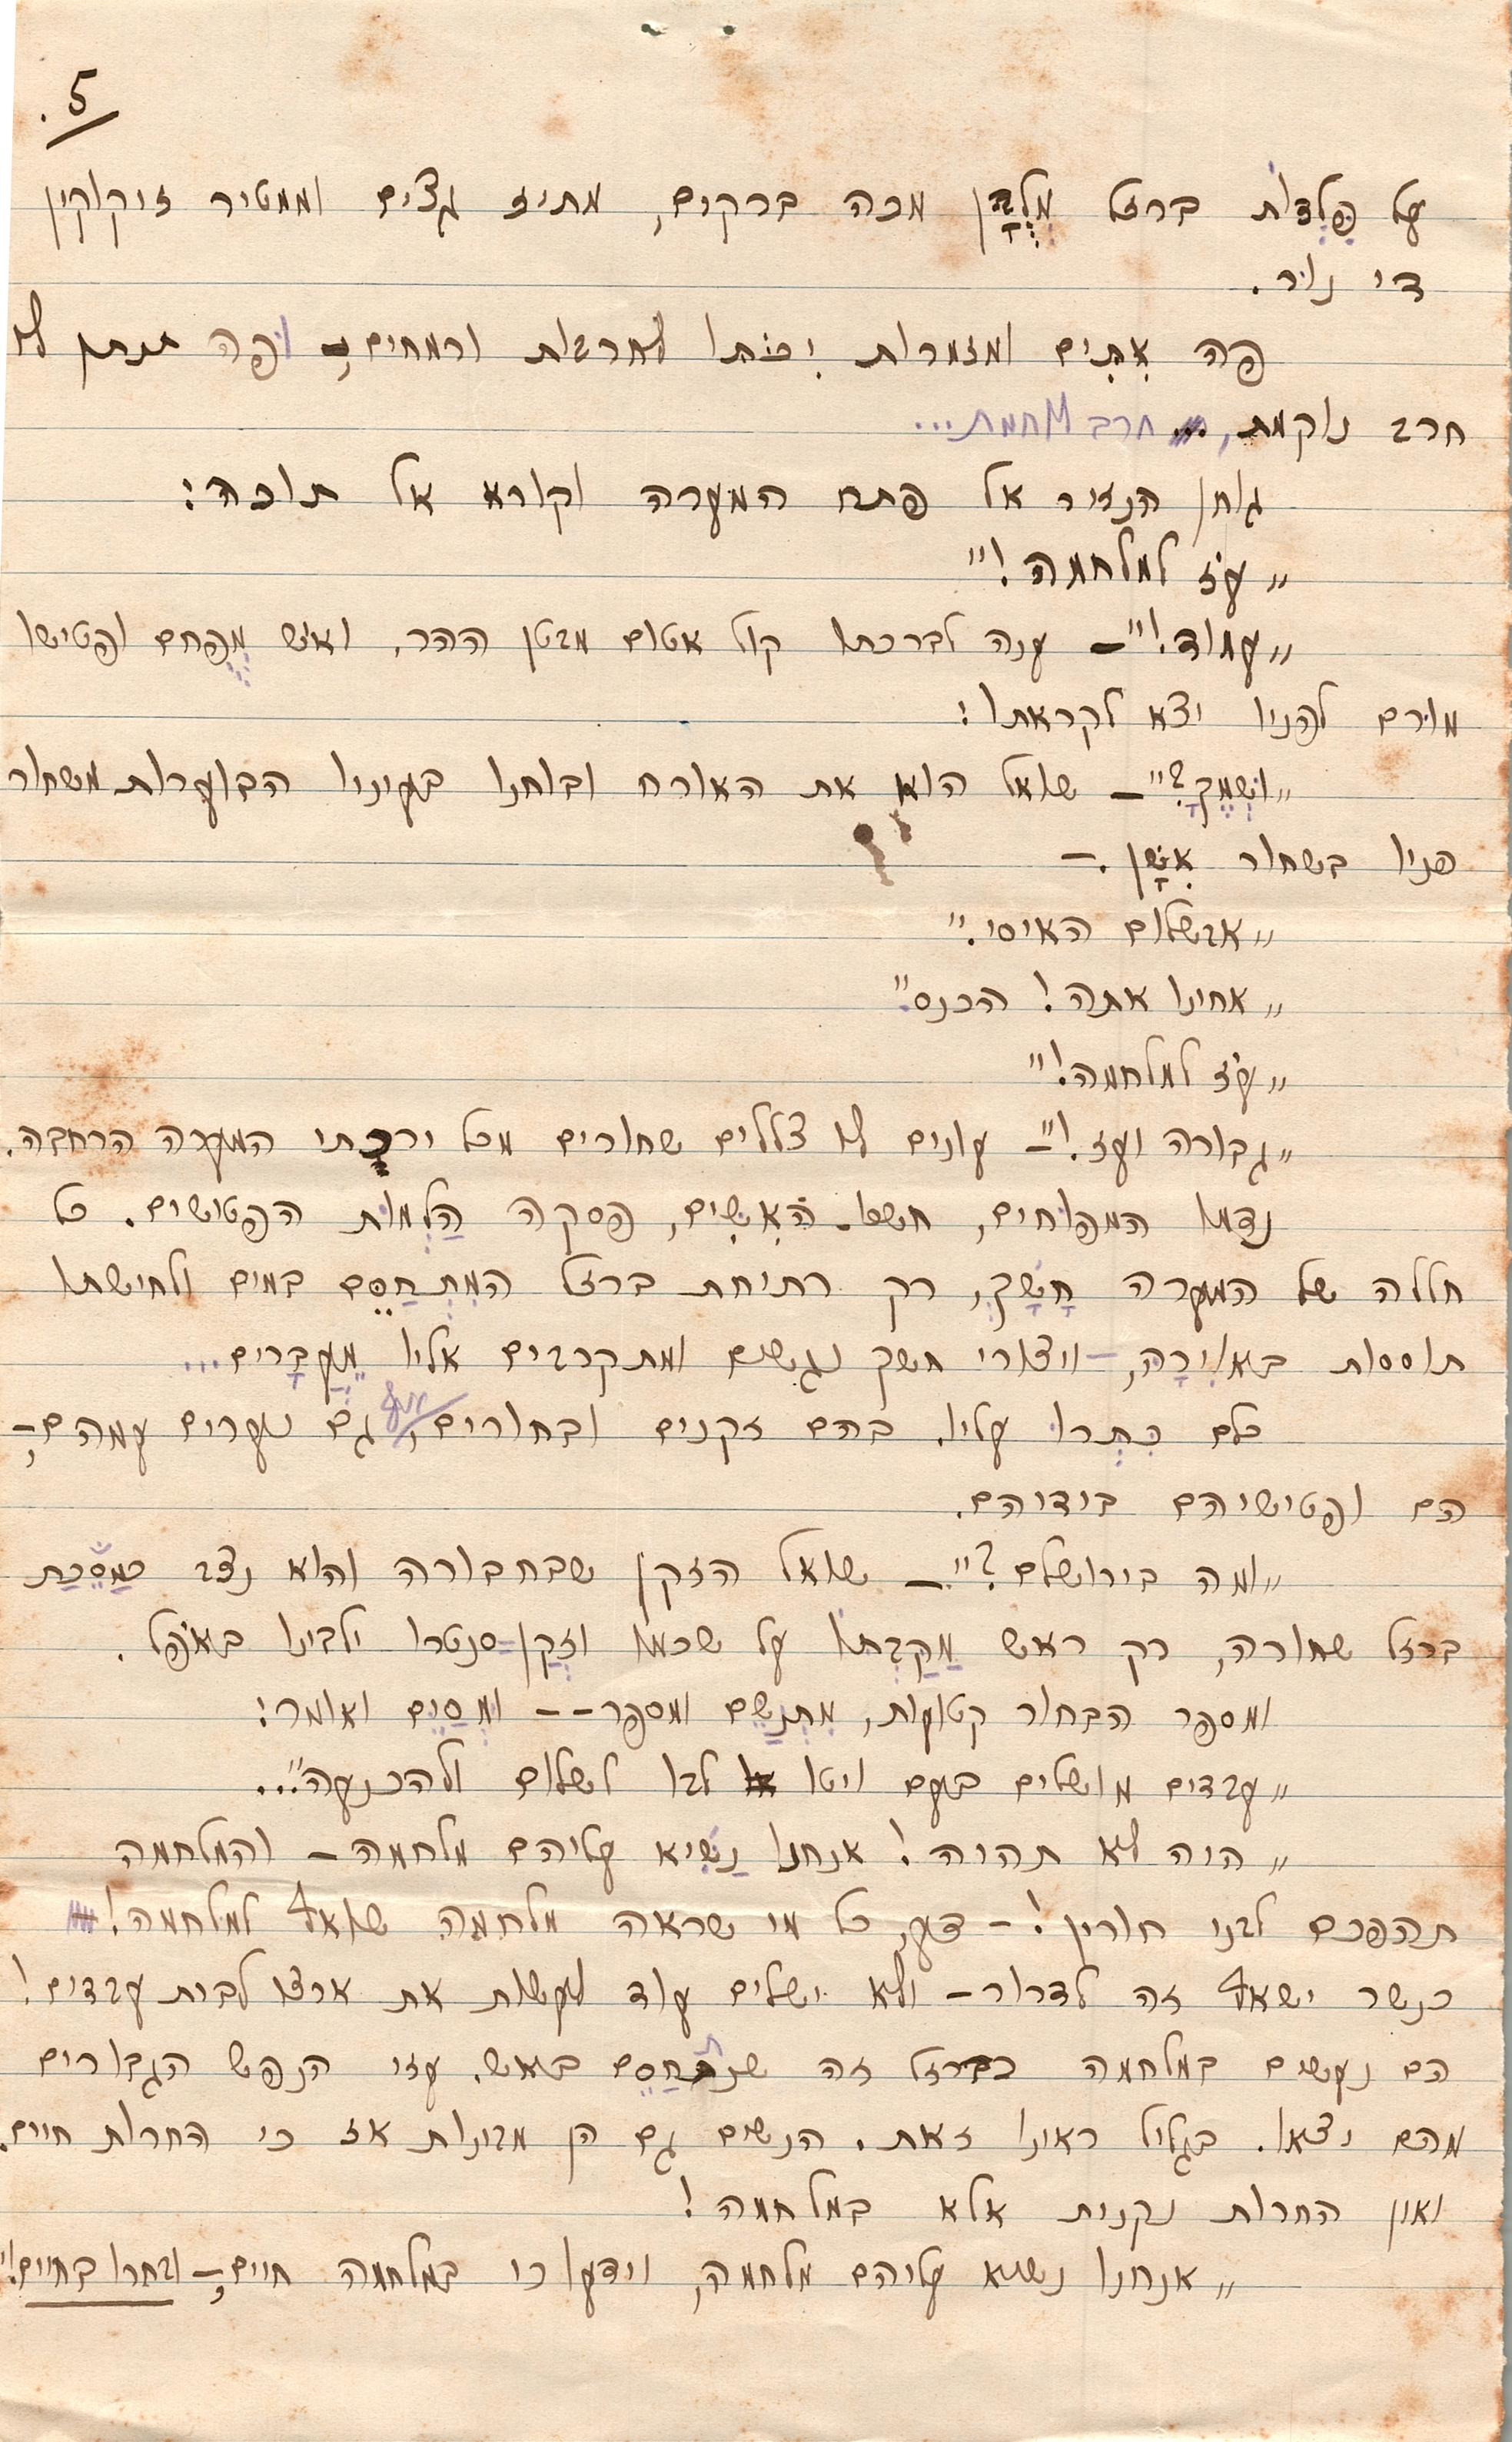 5.
על פַּלְדֹת ברזל מְלֻבָּן מכה ברקים, מתיז גצים וממטיר זיקוקין
די נור.
פה אִתִּים ומזמרות יִכּוֹתוּ לחרבות ורמחים, ופה תנתן לו
חרב נוקמת, חרב מלחמת...
גוחן הנזיר אל פתח המערה וקורא אל תוכה:
„עֹז למלחמה!"
„עמוד!" – ענה לברכתו קול אטום מבטן ההר. ואיש מְפֻחם ופטישו
מורם לפניו יצא לקראתו:
„וּשְׁמֶךָ?" – שואל הוא את האורח ובוחנו בעיניו הבוערות משחור
פניו בשחור אִשָּׁן. –
„אבשלום האיסי."
„אחינו אתה! הכנס."
„עֹז למלחמה!"
„גבורה ועֹז!" – עונים לו צללים שחורים מכל ירכתי המערה הרחבה.
נדמו המפוחים, חשכו הָאִשִּׁים, פסקה הַלְמוּת הפטישים. כל
חללה של המערה חָשָׁךְ, רק רתיחת ברזל המִתְחַסֵּם במים ולחישתו
תוססות באוירה, – ויצורי חשך נגשים ומתקרבים אליו מֵעֲבָרִים...
כלם כִּתְּרוּ עליו. בהם זקנים ובחורים, גם נערים עמהם, –
הם ופטישיהם בידיהם.
„ומה בירושלם?" – שואל הזקן שבחבורה והוא נצב כְּמַסֵּכַת
ברזל שחורה, רק ראש מַקַּבְתּוֹ על שכמו וּזְקַן-סנטרו ילבינו באֹפל.
ומספר הבחור קטועות, מִתְנַשֵּׁם ומספר – – וּמְסַיֵּם ואומר:
„עבדים מושלים בעם ויטו לבו לשלום ולהכנעה"...
„היה לא תהיה! אנחנו נַשִּׂיא עליהם מלחמה – והמלחמה
תהפכם לבני חורין! – דע, כל מי שראה מלחמה שואף למלחמה!
כנשר ישאף זה לדרור – ולא ישלים עוד לעשות את ארצו לבית עבדים!
הם נעשים במלחמה כברזל זה שנתחַסֵּם באש. עזי הנפש הגבורים
מהם יצאו. בגליל ראינו זאת. הנשים גם הן מבינות אז כי החרות חיים.
ואין החרות נקנית אלא במלחמה!
„אנחנו נשיא עליהם מלחמה, וידעו כי במלחמה חיים, – ובחרו בחיים!"